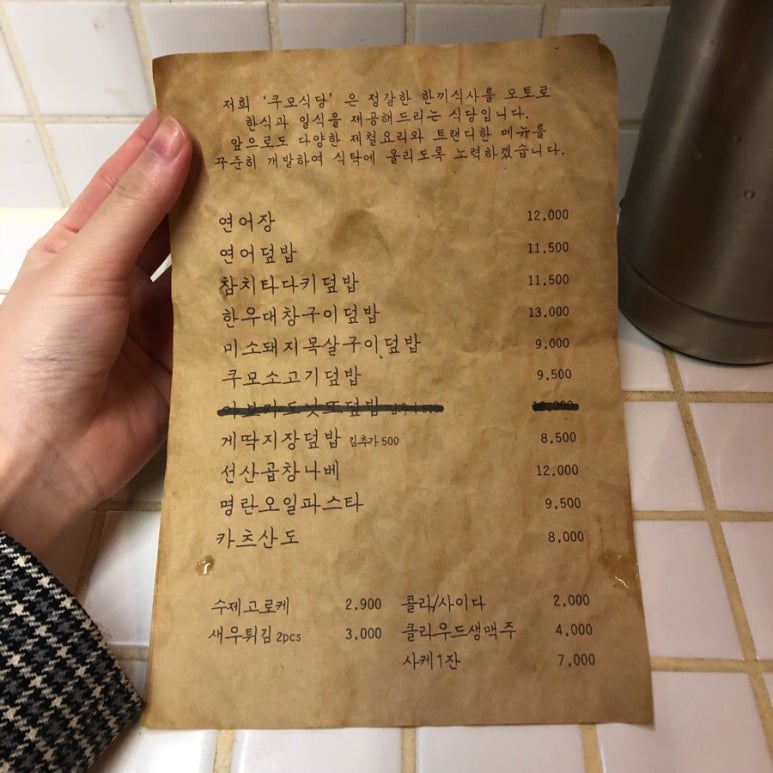 저희 '쿠모식당' 은 정갈한 한끼식사를 모토로
한식과 일식을 제공해드리는 식당입니다.
앞으로도 다양한 제철요리와 트랜디한 메뉴를
꾸준히 개발하여 식탁에 올리도록 노력하겠습니다.
연어장 12,000
연어덮밥 11,500
참치타다키덮밥 11,500
한우대창구이덮밥 13,000
미소돼지목살구이덮밥 9,000
쿠모소고기덮밥 9,500
게딱지장덮밥 김추가 500 8,500
선산곱창나베 12,000
명란오일파스타 9,500
카츠산도 8,000
수제고로케 2,900 콜라/사이다 2,000
새우튀김 2pcs 3,000 클라우드생맥주 4,000
사케1잔 7,000